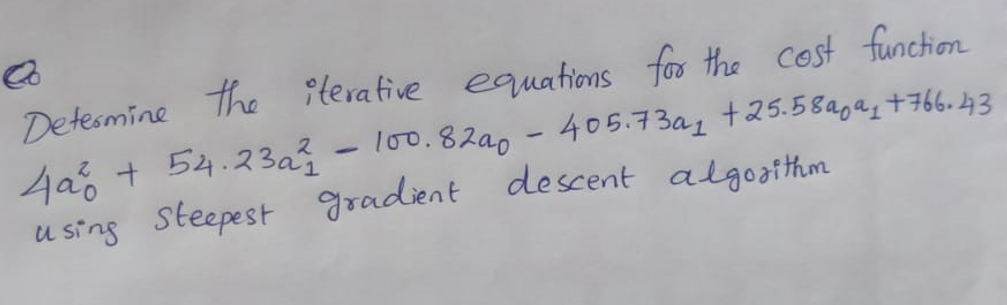 Q
Determine the iterative equations for the cost function
4a₀² + 54.23a₁² - 100.82a₀ - 405.73a₁ + 25.58a₀a₁ + 766.43
using steepest gradient descent algorithm